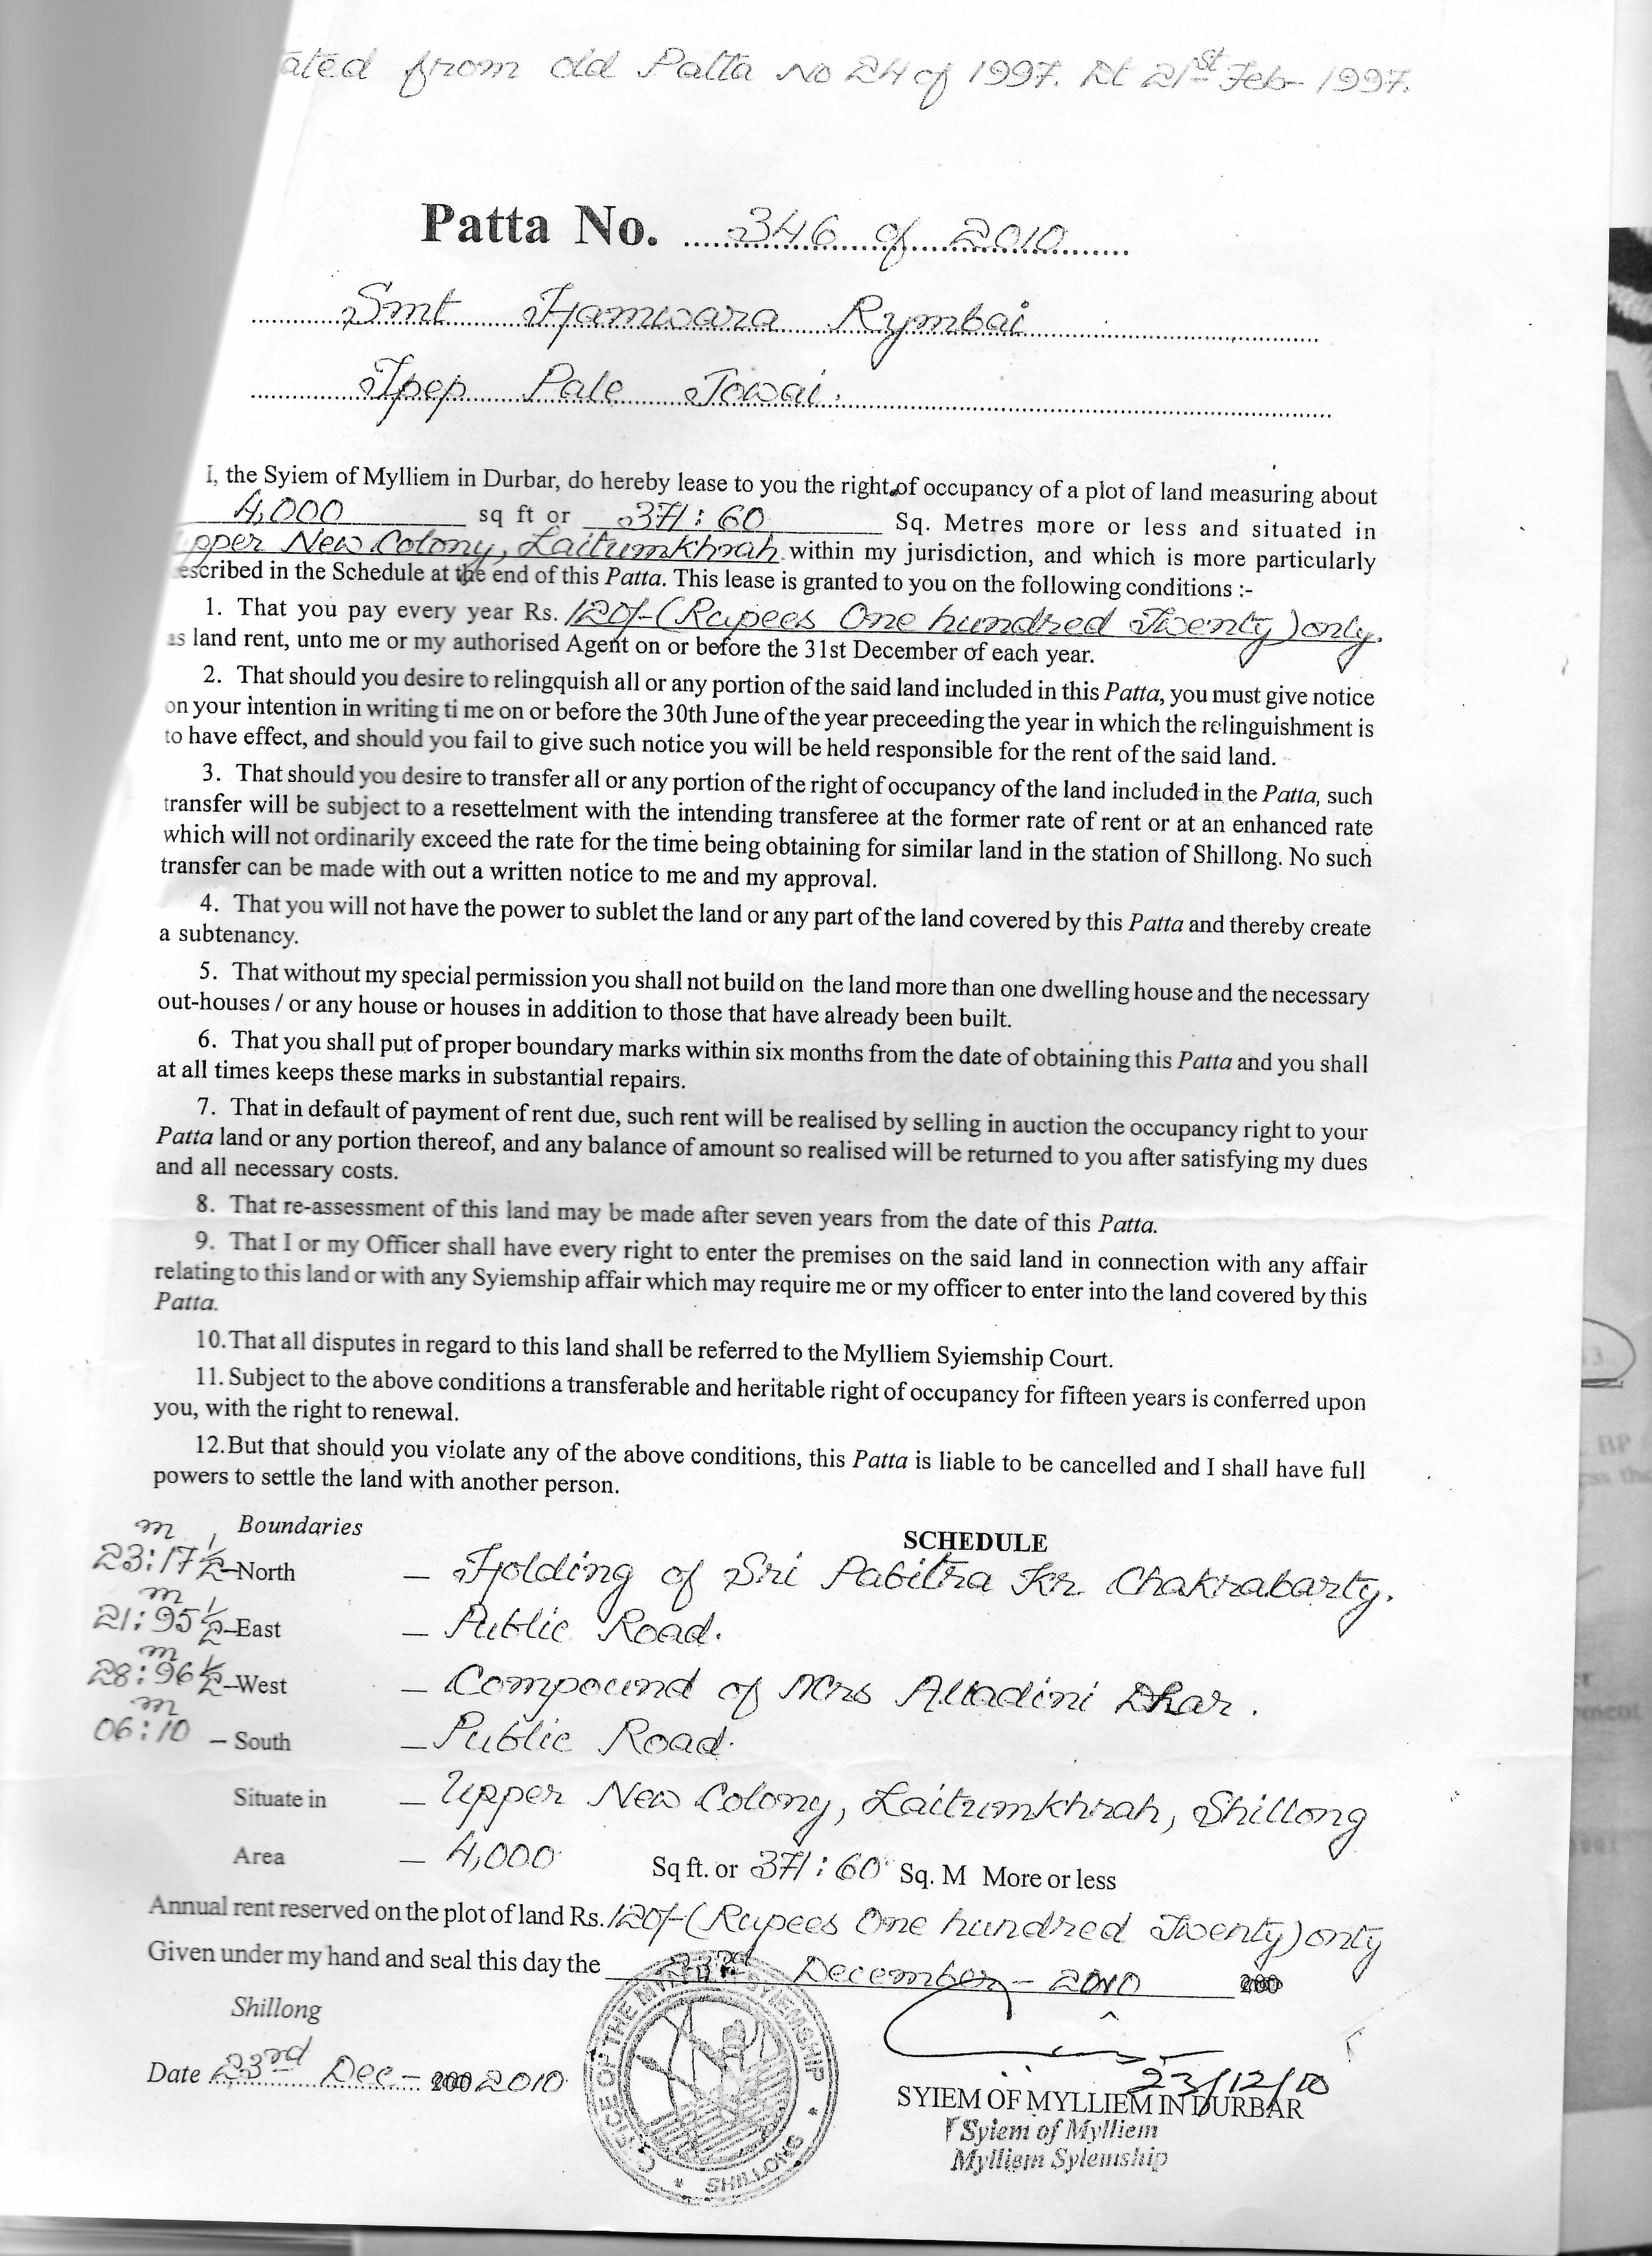 ated from old Patta No 24 of 1997. Dt 21st Feb- 1997.
Patta No. 346 of 2010
Smt Hamwara Rymbai
Ipep Pale Jowai.
I, the Syiem of Mylliem in Durbar, do hereby lease to you the right of occupancy of a plot of land measuring about
4,000 sq ft or 371:60 Sq. Metres more or less and situated in
pper New Colony, Laitumkhrah within my jurisdiction, and which is more particularly
escribed in the Schedule at the end of this Patta. This lease is granted to you on the following conditions :-
1. That you pay every year Rs. 120/-(Rupees One hundred Twenty) only.
as land rent, unto me or my authorised Agent on or before the 31st December of each year.
2. That should you desire to relingquish all or any portion of the said land included in this Patta, you must give notice
on your intention in writing ti me on or before the 30th June of the year preceeding the year in which the relinguishment is
to have effect, and should you fail to give such notice you will be held responsible for the rent of the said land.
3. That should you desire to transfer all or any portion of the right of occupancy of the land included in the Patta, such
transfer will be subject to a resettelment with the intending transferee at the former rate of rent or at an enhanced rate
which will not ordinarily exceed the rate for the time being obtaining for similar land in the station of Shillong. No such
transfer can be made with out a written notice to me and my approval.
4. That you will not have the power to sublet the land or any part of the land covered by this Patta and thereby create
a subtenancy.
5. That without my special permission you shall not build on the land more than one dwelling house and the necessary
out-houses / or any house or houses in addition to those that have already been built.
6. That you shall put of proper boundary marks within six months from the date of obtaining this Patta and you shall
at all times keeps these marks in substantial repairs.
7. That in default of payment of rent due, such rent will be realised by selling in auction the occupancy right to your
Patta land or any portion thereof, and any balance of amount so realised will be returned to you after satisfying my dues
and all necessary costs.
8. That re-assessment of this land may be made after seven years from the date of this Patta.
9. That I or my Officer shall have every right to enter the premises on the said land in connection with any affair
relating to this land or with any Syiemship affair which may require me or my officer to enter into the land covered by this
Patta.
10. That all disputes in regard to this land shall be referred to the Mylliem Syiemship Court.
11. Subject to the above conditions a transferable and heritable right of occupancy for fifteen years is conferred upon
you, with the right to renewal.
12. But that should you violate any of the above conditions, this Patta is liable to be cancelled and I shall have full
powers to settle the land with another person.
Boundaries SCHEDULE
23:17½ m - North - Holding of Sri Pabitra Kr. Chakrabarty.
21:95½ m - East - Public Road.
28:96½ m - West - Compound of Mrs Alladini Dhar.
06:10 m - South - Public Road.
Situate in - Upper New Colony, Laitumkhrah, Shillong
Area - 4,000 Sq ft. or 371:60 Sq. M More or less
Annual rent reserved on the plot of land Rs. 120/-(Rupees One hundred Twenty) only
Given under my hand and seal this day the 23rd December - 2010 200
Shillong
Date 23rd Dec - 200 2010
OFFICE OF THE MYLLIEM SYIEMSHIP * SHILLONG *
23/12/10
SYIEM OF MYLLIEM IN DURBAR
Syiem of Mylliem
Mylliem Syiemship
BP